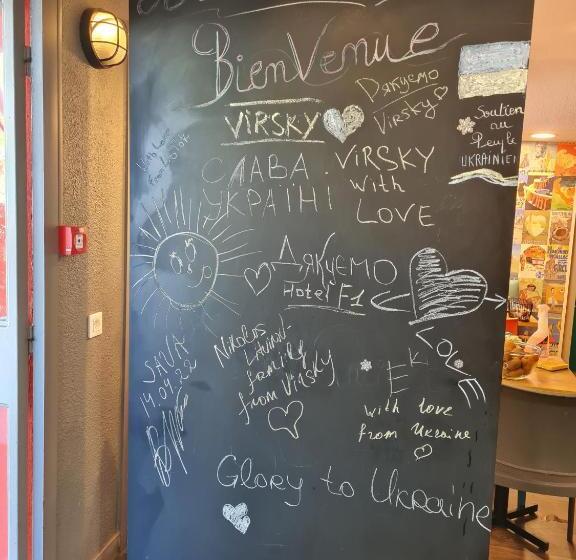 BienVenue
Дякуємо
Virsky
VIRSKY
Soutien
au
Peuple
UKRAINIEN
With Love
СЛАВА
УКРАЇНІ
VIRSKY
with
LOVE
ДЯКУЄМО
Hotel F1
LOVE
SAVA
14.04.22
Nikolas
family
from Virsky
with love
from Ukraine
Glory to Ukraine